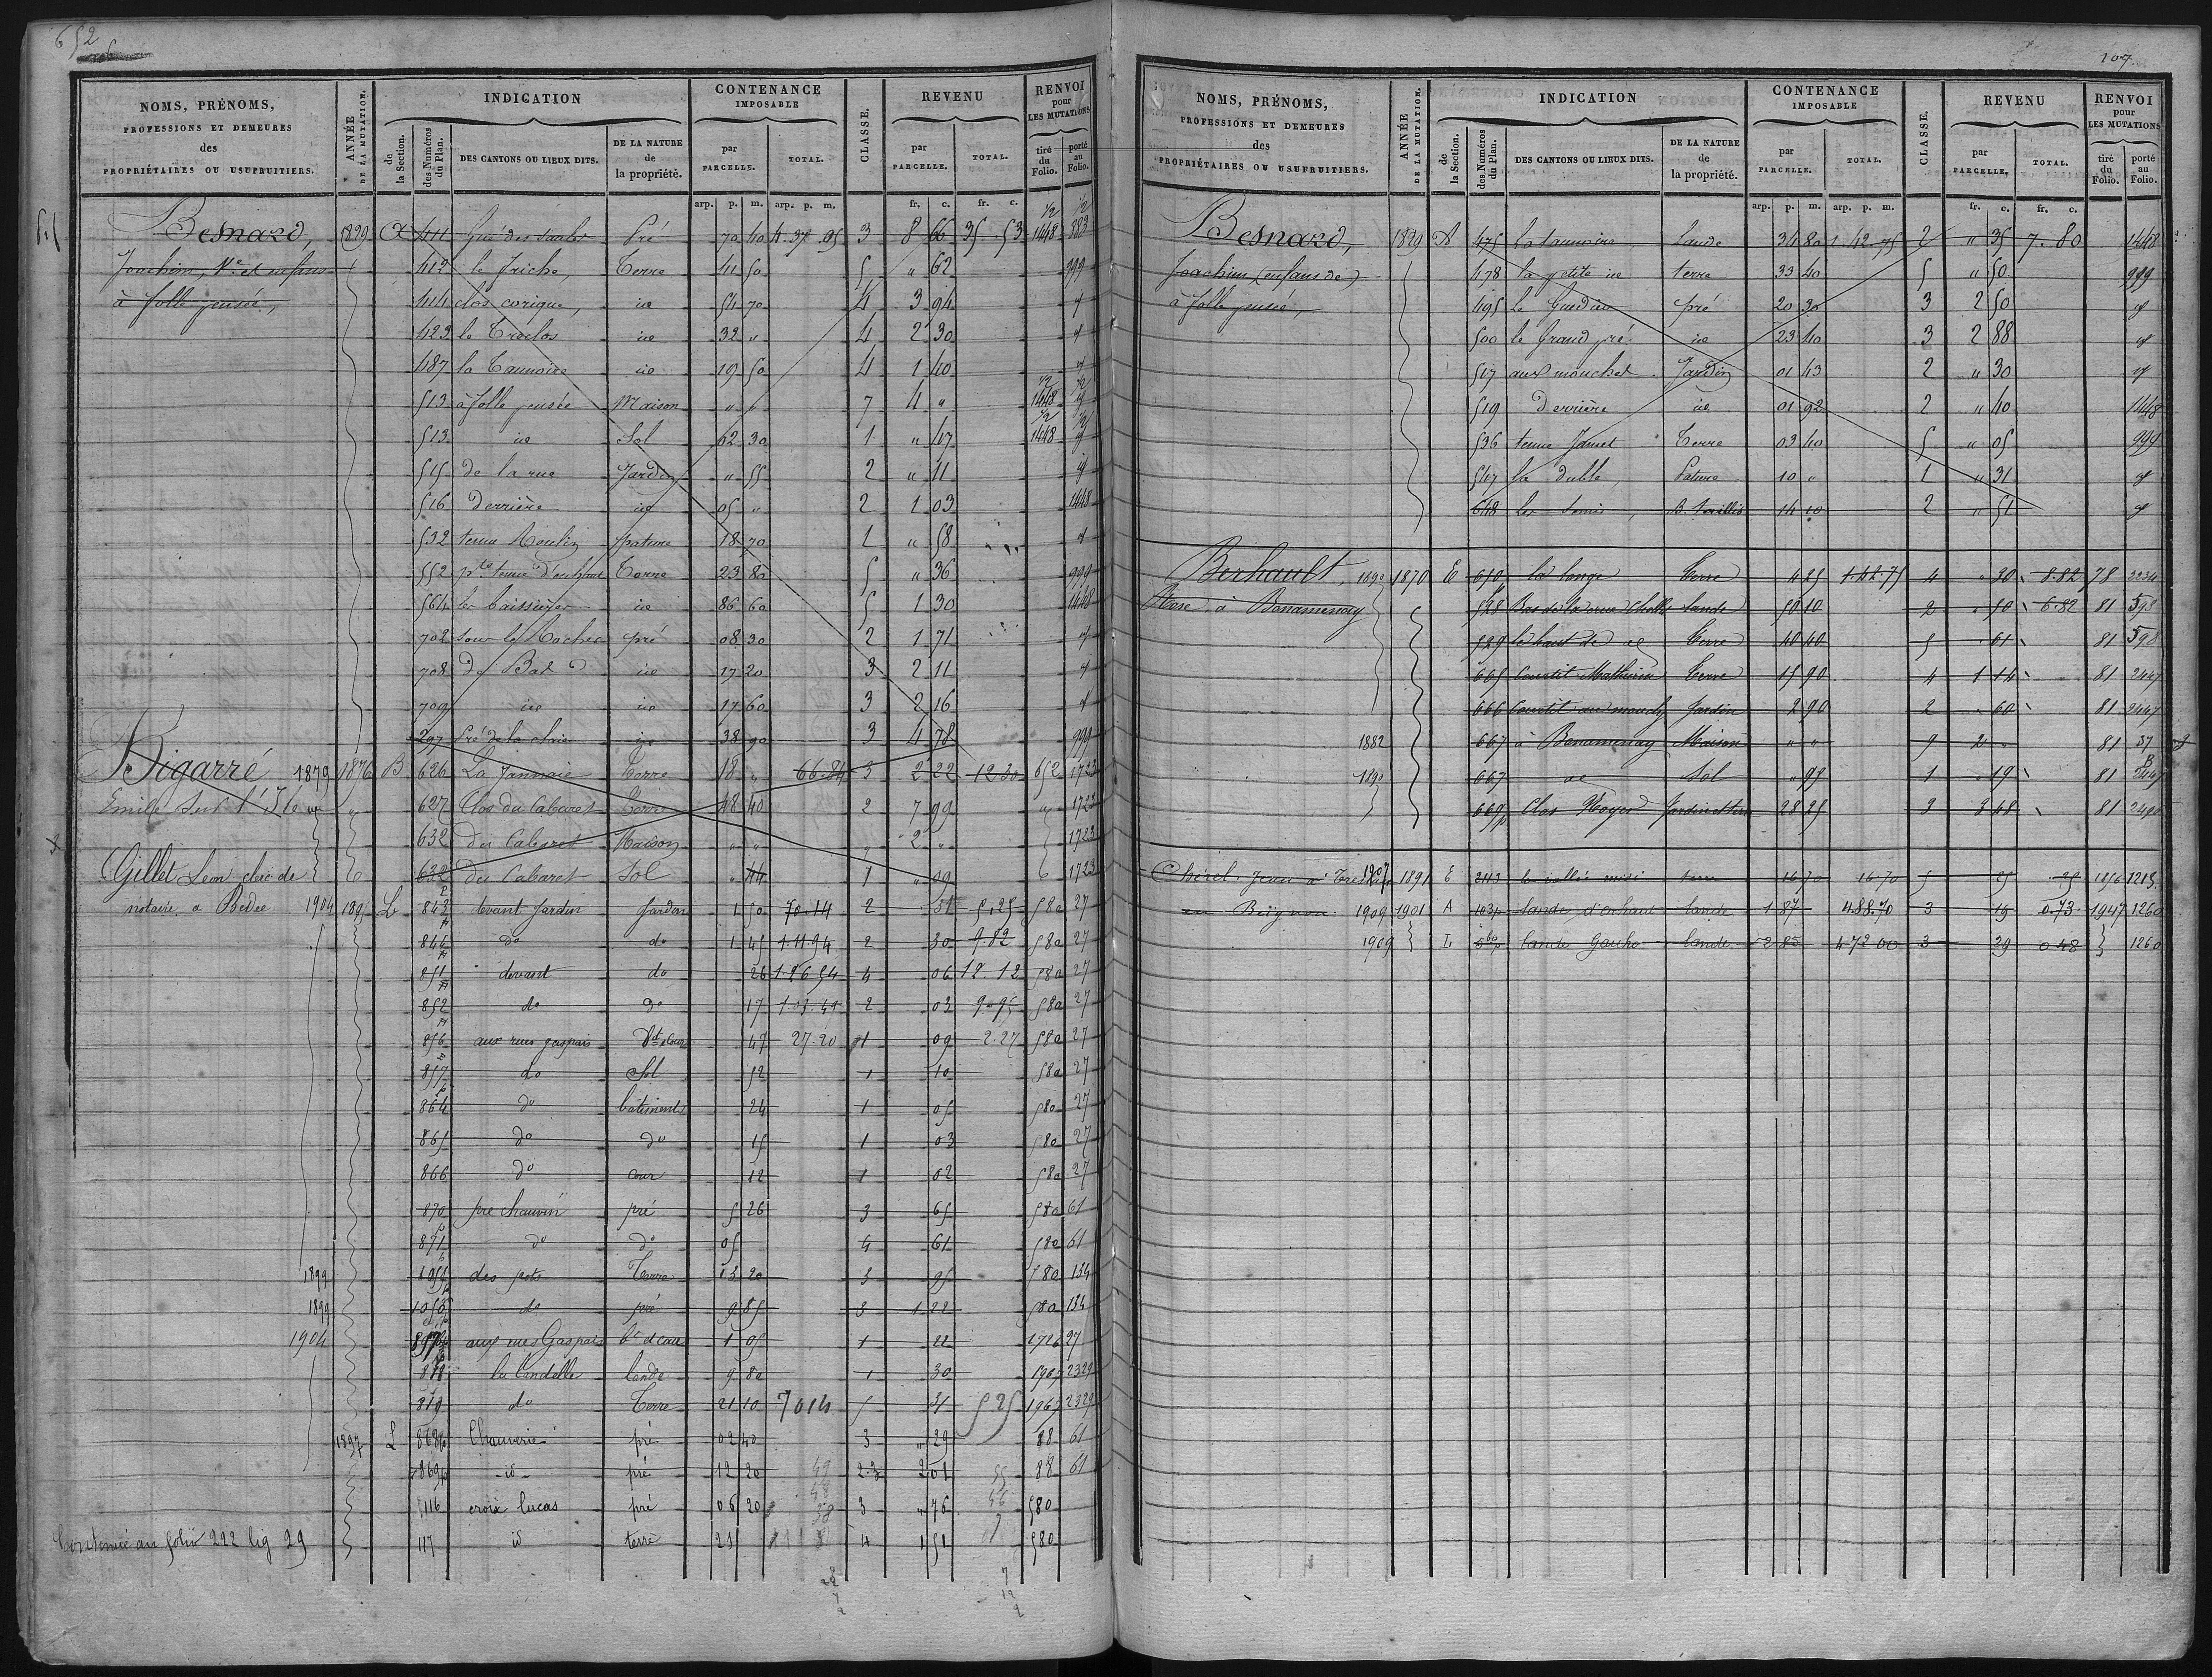 652
NOMS, PRÉNOMS,
PROFESSIONS ET DEMEURES
des
PROPRIÉTAIRES OU USUFRUITIERS.
ANNÉE
DE LA MUTATION.
INDICATION
de
la Section.
des Numéros
du Plan.
DES CANTONS OU LIEUX DITS.
DE LA NATURE
de
la propriété.
CONTENANCE
IMPOSABLE
par
PARCELLE.
TOTAL.
CLASSE.
REVENU
par
PARCELLE.
TOTAL.
RENVOI
pour
LES MUTATIONS
tiré
du
Folio.
porté
au
Folio.
arp. p. m. arp. p. m. fr. c. fr. c.
Besnard, 1829 A 411 Pré 70 40 4. 37. 95 3 8 66 35. 53 1/2 1448 1/2 883
Joachim, Ve et enfans 412 le friche, Terre 41 50 5 " 62 999
à folle pensée, 414 clos corigue, id 54 70 4 3 94 "
423 le Treclos id 32 " 4 2 30 "
487 la Tannoire id 19 50 4 1 40 "
513 à folle pensée Maison " " 7 4 " 1/2 1448 1/2
513 id Sol 02 30 1 " 47 1/2 1448 1/2
515 de la rue Jardin " 55 2 " 11 "
516 Derrière id 05 " 2 1 03 1448
532 tenue Moulin pature 18 70 1 " 58 "
552 Terre 23 80 5 " 36 999
564 les baissières id 86 60 5 1 30 1448
702 sous le Rocher pré 08 30 2 1 71 "
708 du Bat id 17 20 3 2 11 "
709 id id 17 60 3 2 16 "
297 Pré de la id 38 90 3 4 78 999
Bigarré 1879 1876 B 626 La Jannaie Terre 18 " 66.84 3 2 22 12.30 652 1723
Emile 627 Clos du Cabaret Terre 48 40 2 7 99 " 1723
632 du Cabaret Maison " " " 2 " 1723
Gillet Leon clerc de 632 du Cabaret Sol " 44 1 " 09 1723
notaire a Bedee 1904 189 L 843 devant Jardin Jardin 1 50 70.14 2 31 5.25 580 27
846 do do 1 45 1.11.94 2 30 9.82 580 27
851 devant do 26 1.26 54 4 06 12.12 580 27
852 do do 17 1.03.49 2 03 9.95 580 27
856 aux rues gaspais 47 27.20 1 09 2.27 580 27
857 do Sol 52 1 10 580 27
864 do batiments 24 1 05 580 27
865 do do 15 1 03 580 27
866 do Cour 12 1 02 580 27
870 pre Chauvin pré 5 26 3 65 580 61
871 do do 05 4 61 580 61
1899 1054 des pots Terre 13 20 3 95 580 134
1899 1056 do pré 9 85 3 1 22 580 134
1904 aux rues Gaspais 1 05 1 22 1726 27
818 la Candelle lande 9 80 1 30 1967 2329
819 do Terre 21 10 7014 5 31 525 1967 2329
1897 L 868p Chauverie pré 02 40 3 " 29 88 61
869p id pré 12 20 2.3 2 01 88 61
116 croix lucas pré 06 20 3 " 76 580
Continué au folio 222 lig 29 117 id terre 21 4 1 51 580
107
NOMS, PRÉNOMS,
PROFESSIONS ET DEMEURES
des
PROPRIÉTAIRES OU USUFRUITIERS.
ANNÉE
DE LA MUTATION.
INDICATION
de
la Section.
des Numéros
du Plan.
DES CANTONS OU LIEUX DITS.
DE LA NATURE
de
la propriété.
CONTENANCE
IMPOSABLE
par
PARCELLE.
TOTAL.
CLASSE.
REVENU
par
PARCELLE.
TOTAL.
RENVOI
pour
LES MUTATIONS
tiré
du
Folio.
porté
au
Folio.
arp. p. m. arp. p. m. fr. c. fr. c.
Besnard, 1829 A 475 La tannoire Lande 34 80 1. 42. 75 2 " 35 7. 80 1448
Joachim (enfans de) 478 la petite id terre 33 40 5 " 50 999
à folle pensée, 495 Le Guedian pré 20 30 3 2 50 "
500 le Grand pré id 23 40 3 2 88 "
517 aux mouches Jardin 01 43 2 " 30 "
519 Derrière id 01 92 2 " 40 1448
536 tenue Jamet Terre 03 40 5 " 05 999
547 la Dubte, Pature 10 " 1 " 31 "
648 les Semis, B. taillis 14 10 2 " 51 "
Berhault, 1890 1870 E 610 la longe Terre 4 25 1.42.71 4 " 30 8.82 78 2234
à Bonamenay 528 Lande 50 10 2 " 50 6.82 81 598
529 le haut de id Terre 40 40 5 " 61 81 598
665 Courtil Mathurin Terre 15 90 4 1 14 81 2447
666 Courtil au Jardin 2 90 2 " 60 81 2447
1882 667 à Bonamenay Maison " " 9 2 " 81 37
1890 667 id Sol " 97 1 " 19 81 2447
669p Clos Noyer Jardin et terre 28 25 3 3 48 81 2490
Chérel Jean à 1907 1891 E 243 la vallée terre 16 70 16.70 5 25 25 1056 1213
en Beignon 1909 1901 A 103p lande d'enhaut lande 1 87 4.88.70 3 19 0.73 1947 1260
1909 L 560p lande Gauho lande 2 85 4 72 00 3 29 0 48 1260